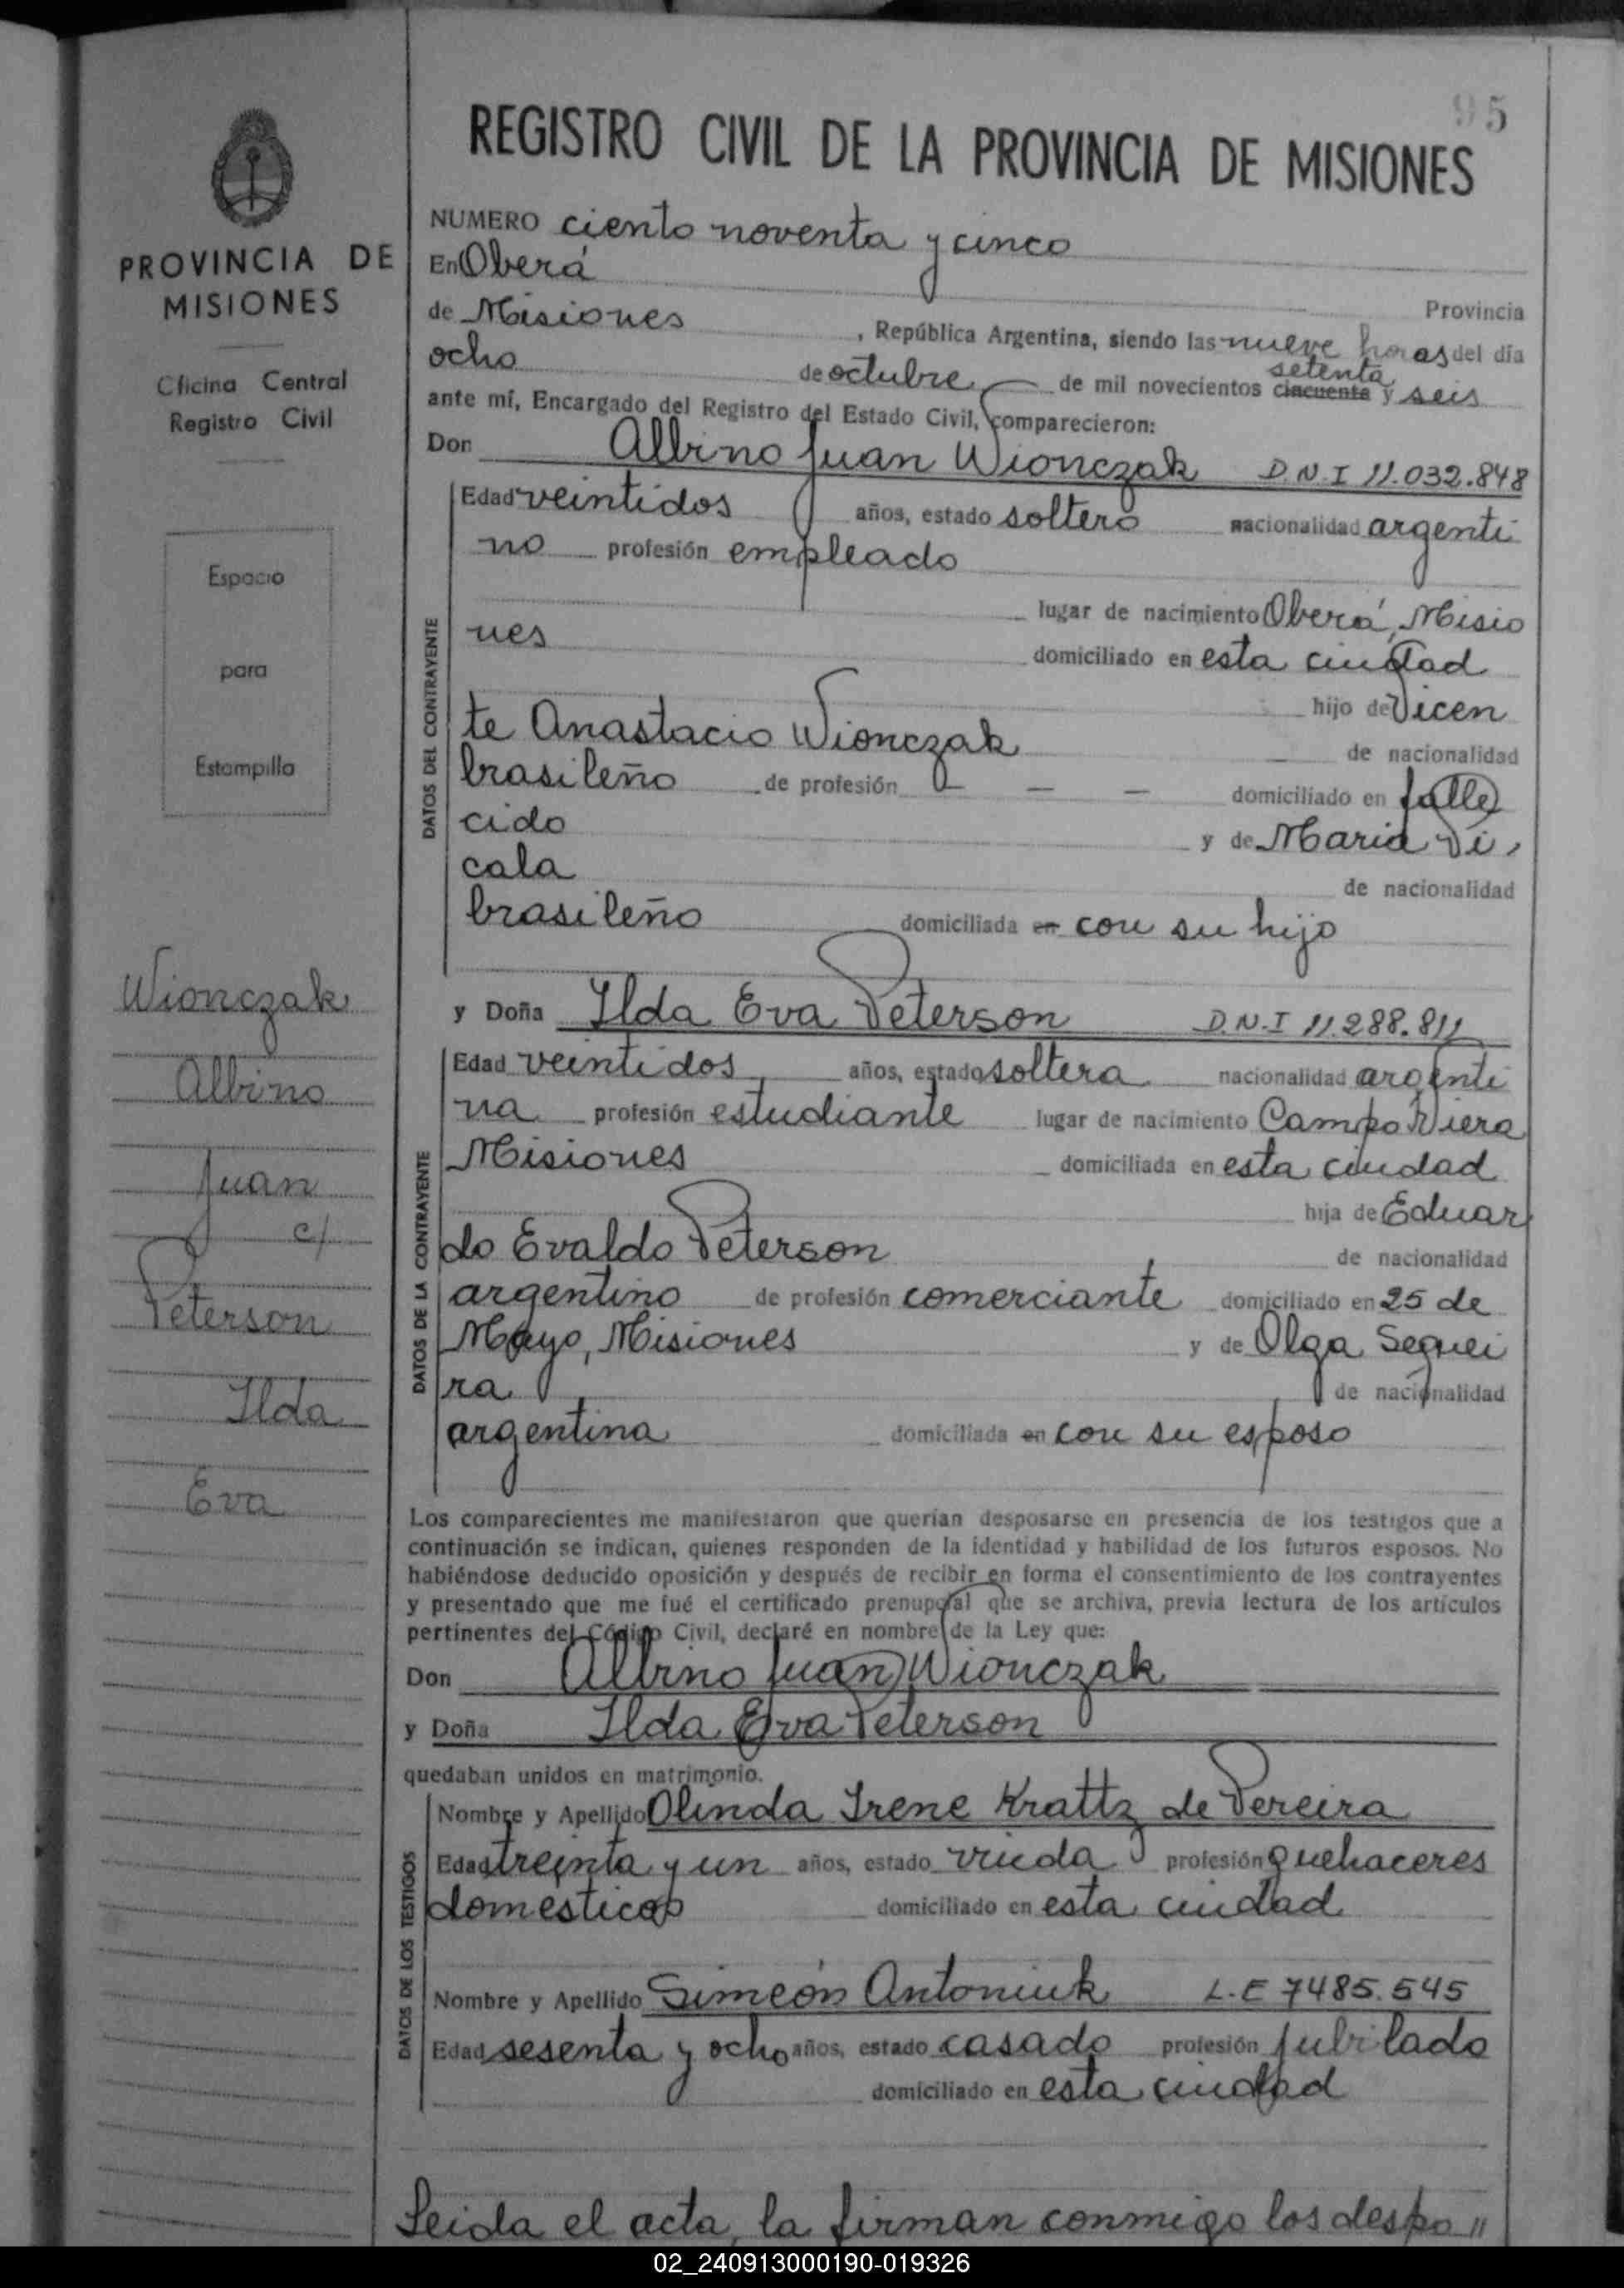 95
REGISTRO CIVIL DE LA PROVINCIA DE MISIONES
PROVINCIA DE
MISIONES
Oficina Central
Registro Civil
Espacio
para
Estampilla
Wionczak
Albino
Juan
c/
Peterson
Ilda
Eva
NUMERO ciento noventa y cinco
En Oberá
Provincia
de Misiones, República Argentina, siendo las nueve horas del día
setenta
ocho de octubre de mil novecientos cincuenta y seis
ante mí, Encargado del Registro del Estado Civil, comparecieron:
Don Albino Juan Wionczak D.N.I 11.032.848
DATOS DEL CONTRAYENTE
Edad veintidos años, estado soltero nacionalidad argenti
no profesión empleado
lugar de nacimiento Oberá, Misio
nes domiciliado en esta ciudad
hijo de Vicen
te Anastacio Wionczak de nacionalidad
brasileño de profesión — — — domiciliado en falle
cido y de Maria Pi,
cala de nacionalidad
brasileño domiciliada en con su hijo
y Doña Ilda Eva Peterson D.N.I 11.288.811
DATOS DE LA CONTRAYENTE
Edad veintidos años, estado soltera nacionalidad argenti
na profesión estudiante lugar de nacimiento Campo Viera
Misiones domiciliada en esta ciudad
hija de Eduar
do Evaldo Peterson de nacionalidad
argentino de profesión comerciante domiciliado en 25 de
Mayo, Misiones y de Olga Seguei
ra de nacionalidad
argentina domiciliada en con su esposo
Los comparecientes me manifestaron que querían desposarse en presencia de los testigos que a
continuación se indican, quienes responden de la identidad y habilidad de los futuros esposos. No
habiéndose deducido oposición y después de recibir en forma el consentimiento de los contrayentes
y presentado que me fué el certificado prenupcial que se archiva, previa lectura de los artículos
pertinentes del Código Civil, declaré en nombre de la Ley que:
Don Albino Juan Wionczak
y Doña Ilda Eva Peterson
quedaban unidos en matrimonio.
DATOS DE LOS TESTIGOS
Nombre y Apellido Olinda Irene Krattz de Pereira
Edad treinta y un años, estado viuda profesión quehaceres
domesticos domiciliado en esta ciudad
Nombre y Apellido Simeón Antoniuk L.E 7485.545
Edad sesenta y ocho años, estado casado profesión jubilado
domiciliado en esta ciudad
Leida el acta, la firman conmigo los despo "
02_240913000190-019326